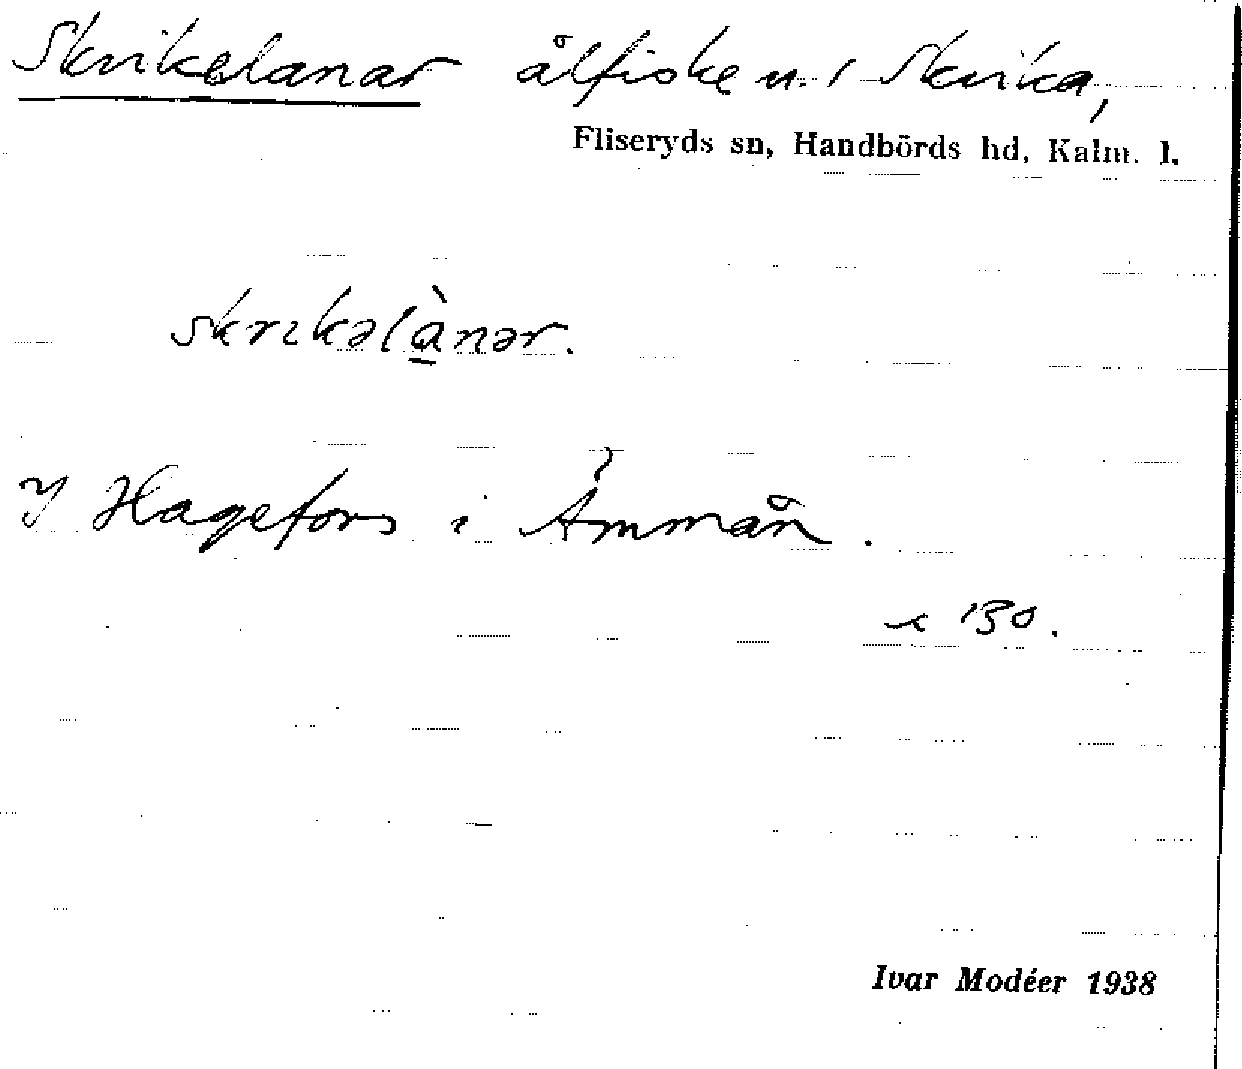 Skrikelanar ålfiske u. / Skrika,
Fliseryds sn, Handbörds hd, Kalm. l.
skrɩkəlànər.
y Hagefors i Ämmån.
130.
Ivar Modéer 1938